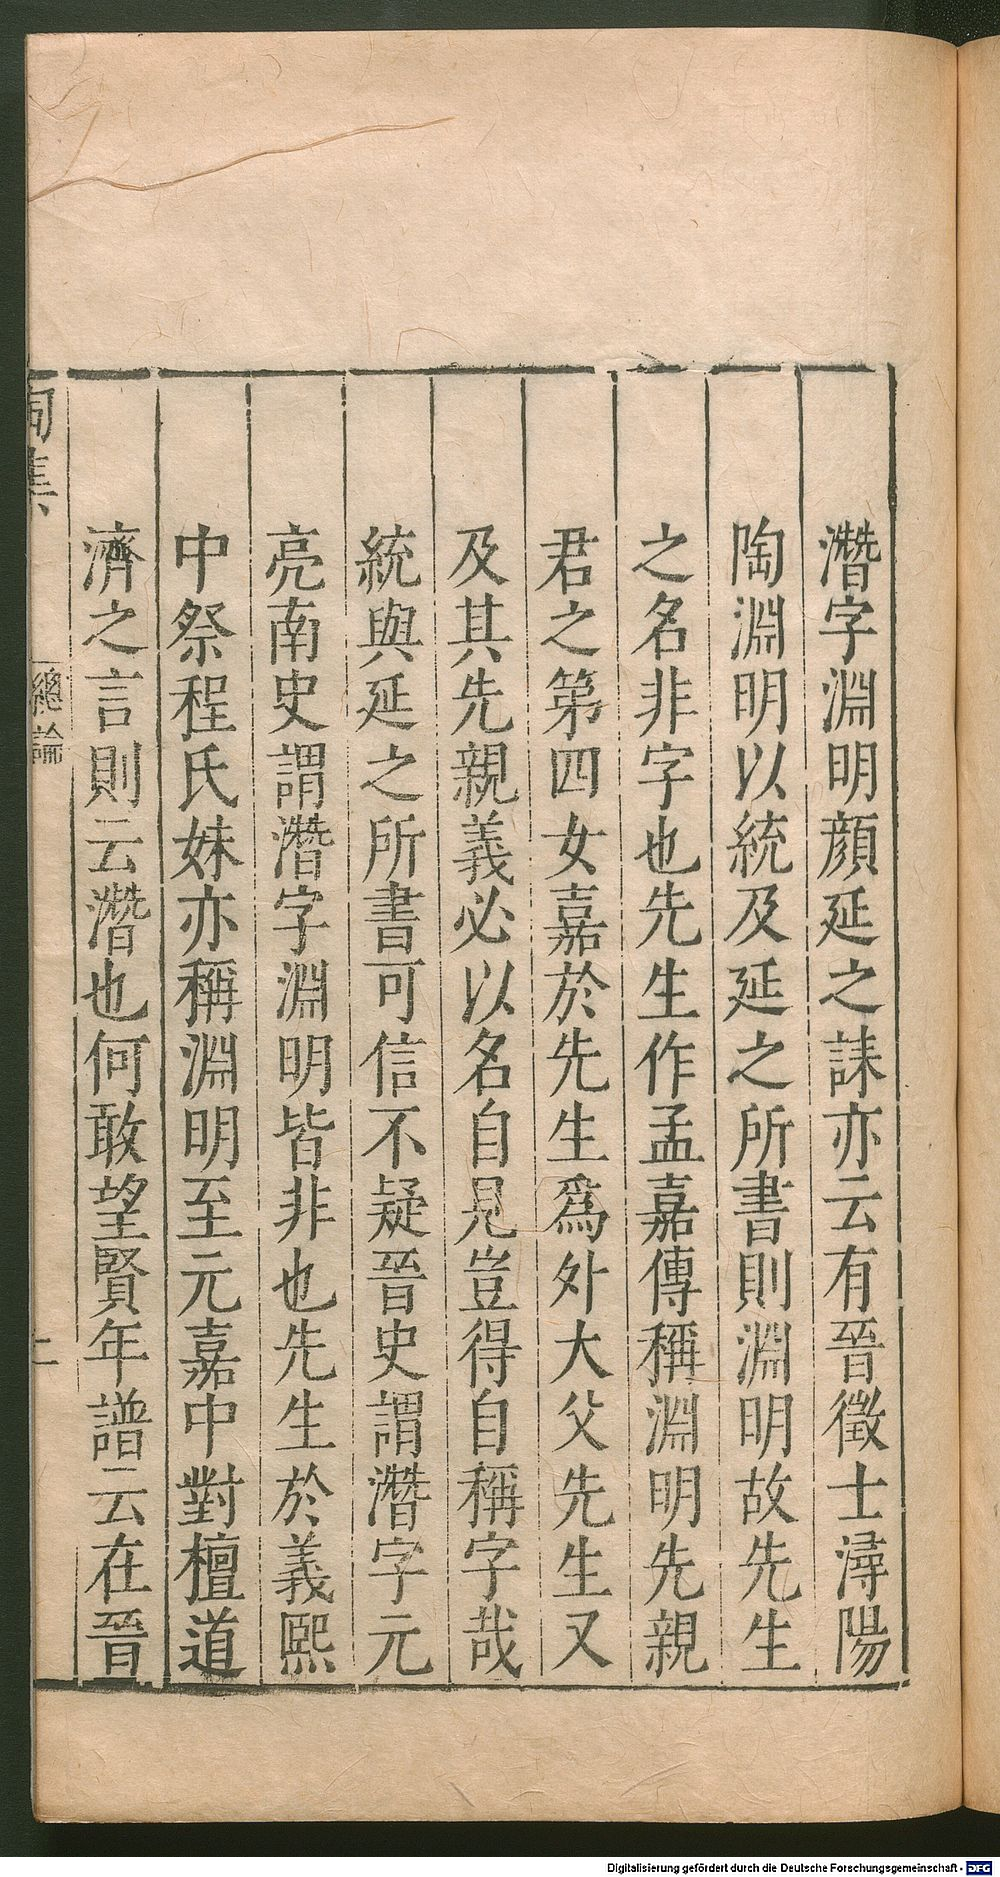 潛字淵明顏延之誄亦云有晉徵士潯陽
陶淵明以統及延之所書則淵明故先生
之名非字也先生作孟嘉傳稱淵明先親
君之第四女嘉於先生爲外大父先生又
及其先親義必以名自見豈得自稱字哉
統與延之所書可信不疑晉史謂潛字元
亮南史謂潛字淵明皆非也先生於義熙
中祭程氏妹亦稱淵明至元嘉中對檀道
濟之言則云潛也何敢望賢年譜云在晉
陶集
總論
Digitalisierung gefördert durch die Deutsche Forschungsgemeinschaft - DFG